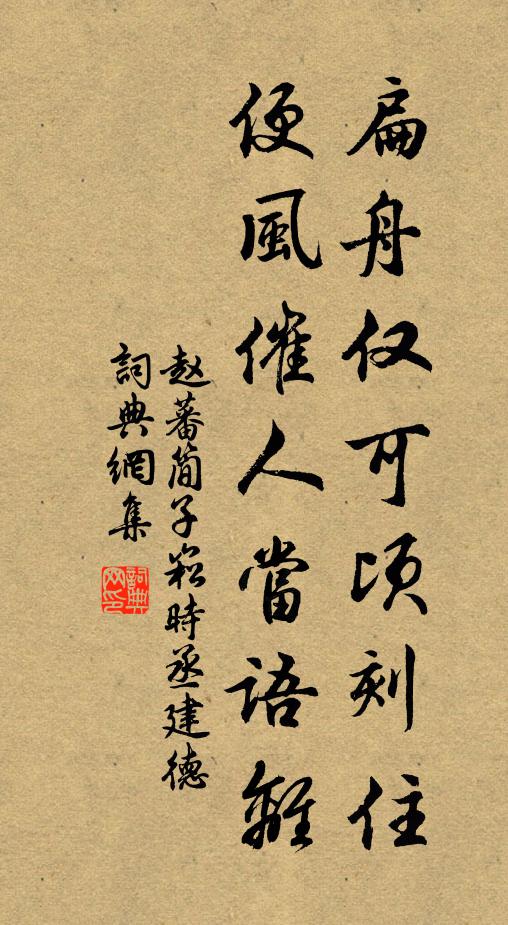 扁舟仅可頃刻住
便風催人當語離
赵蕃簡子崧時丞建德
詞典網集
詞典网印